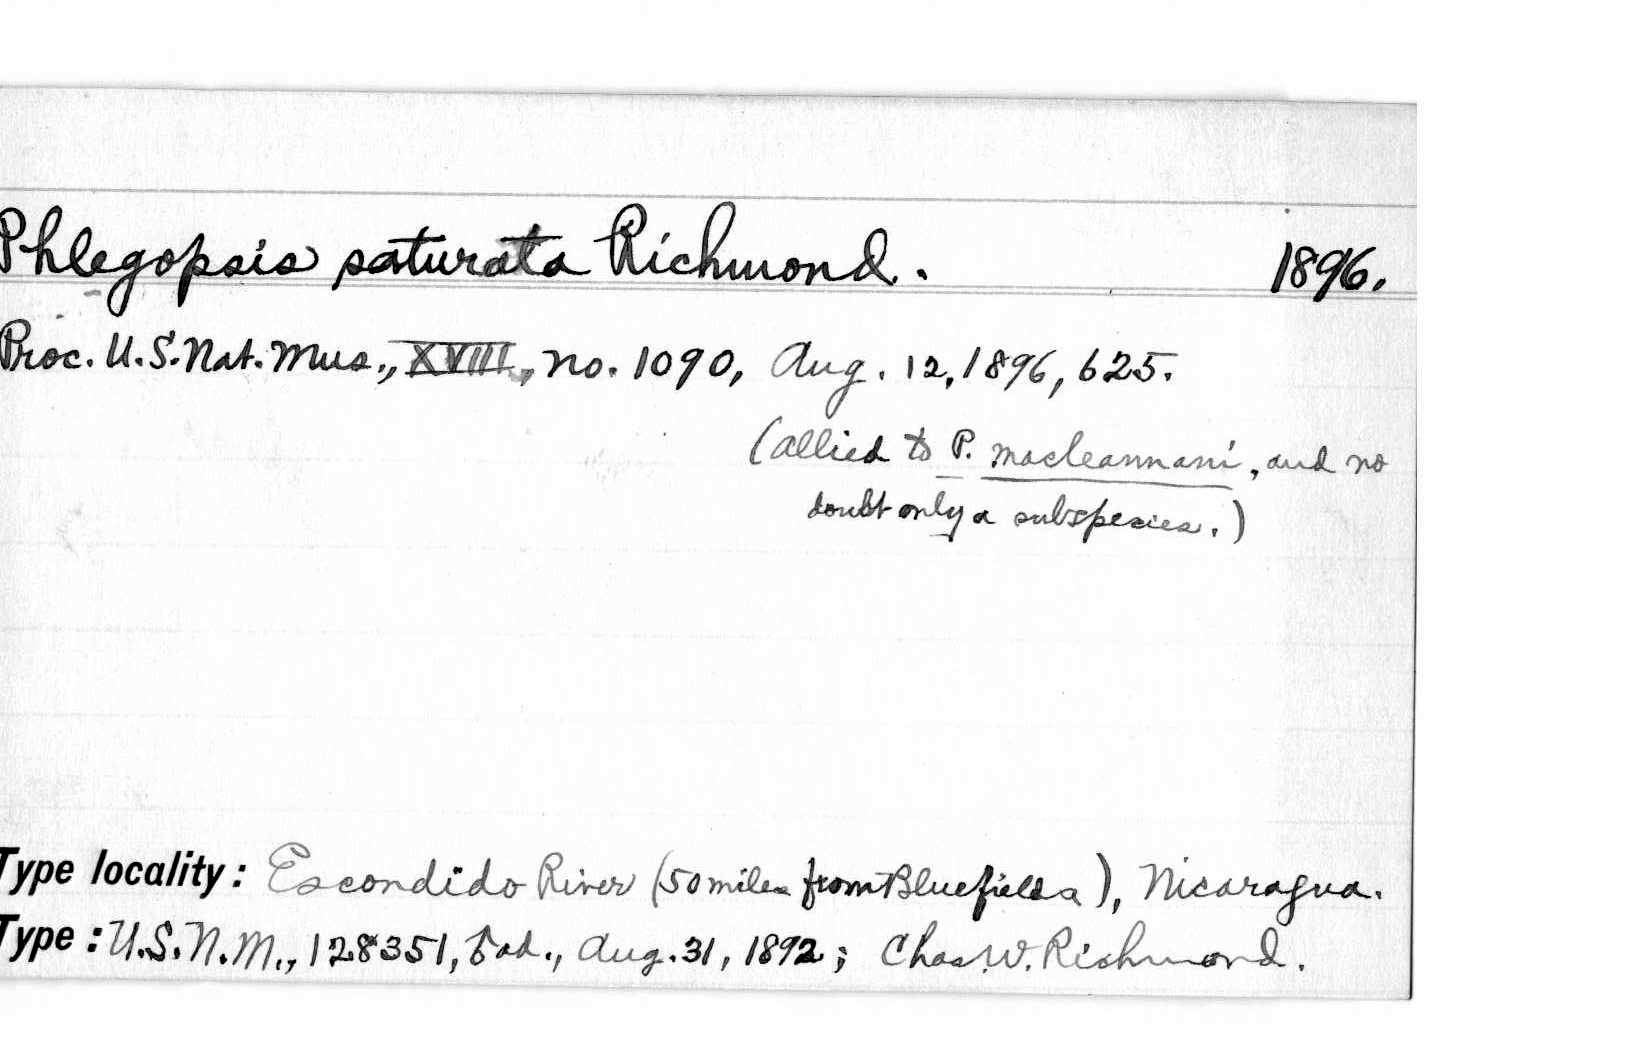 Phlegopsis saturata Richmond. 1896.
Proc. U.S. Nat. Mus., XVIII, no. 1090, Aug. 12, 1896, 625.
(allied to P. macleannani, and no
doubt only a subspecies.)
Type locality: Escondido River (50 miles from Bluefields), Nicaragua.
Type: U.S.N.M., 128351, ad., Aug. 31, 1892; Chas. W. Richmond.